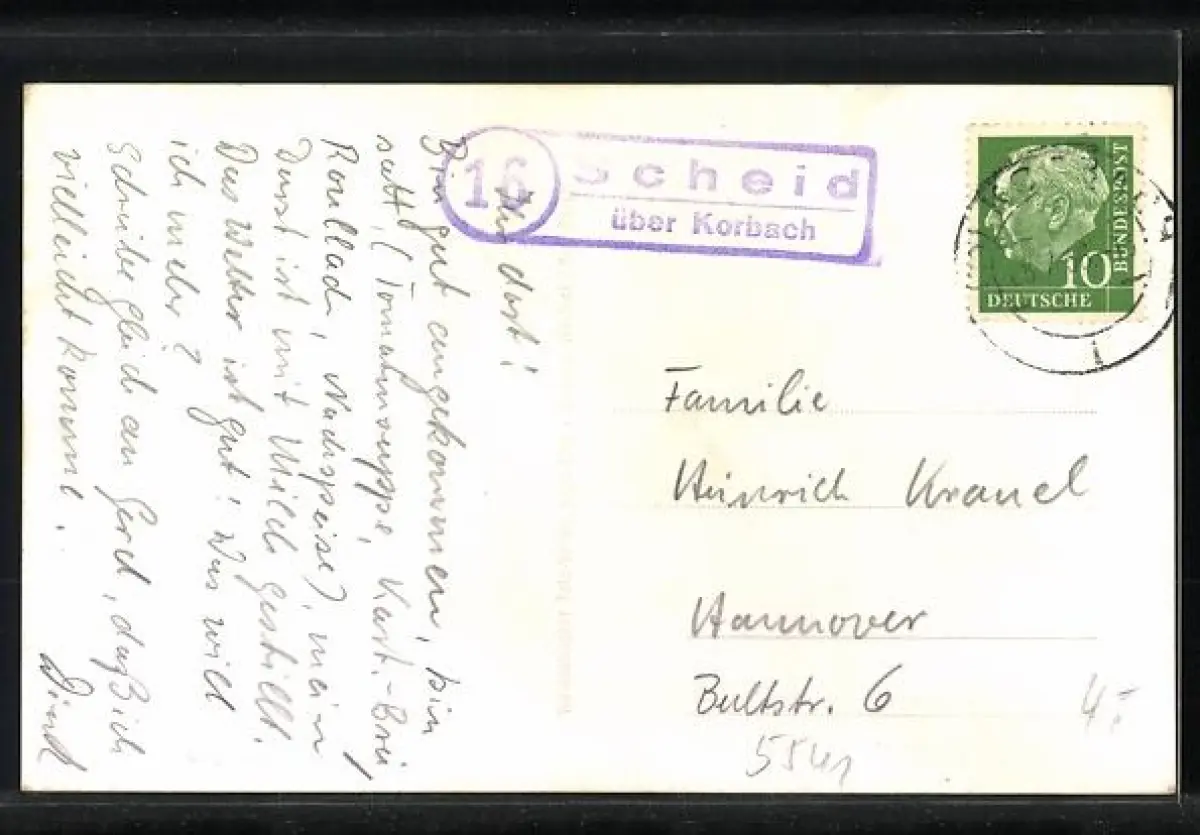 Ihr dort!
Bin gut angekommen, bin
satt, (Tomatensuppe, Kart.-Brei
Roullade, Nachspeise), mein
Durst ist mit Milch gestillt.
Das Wetter ist gut! Was will
ich mehr?
Schreibe gleich an Gerd, daß ich
vielleicht komme.
16
Scheid
über Korbach
10
DEUTSCHE
BUNDESPOST
Familie
Heinrich Kranel
Hannover
Bultstr. 6
5541
4.-